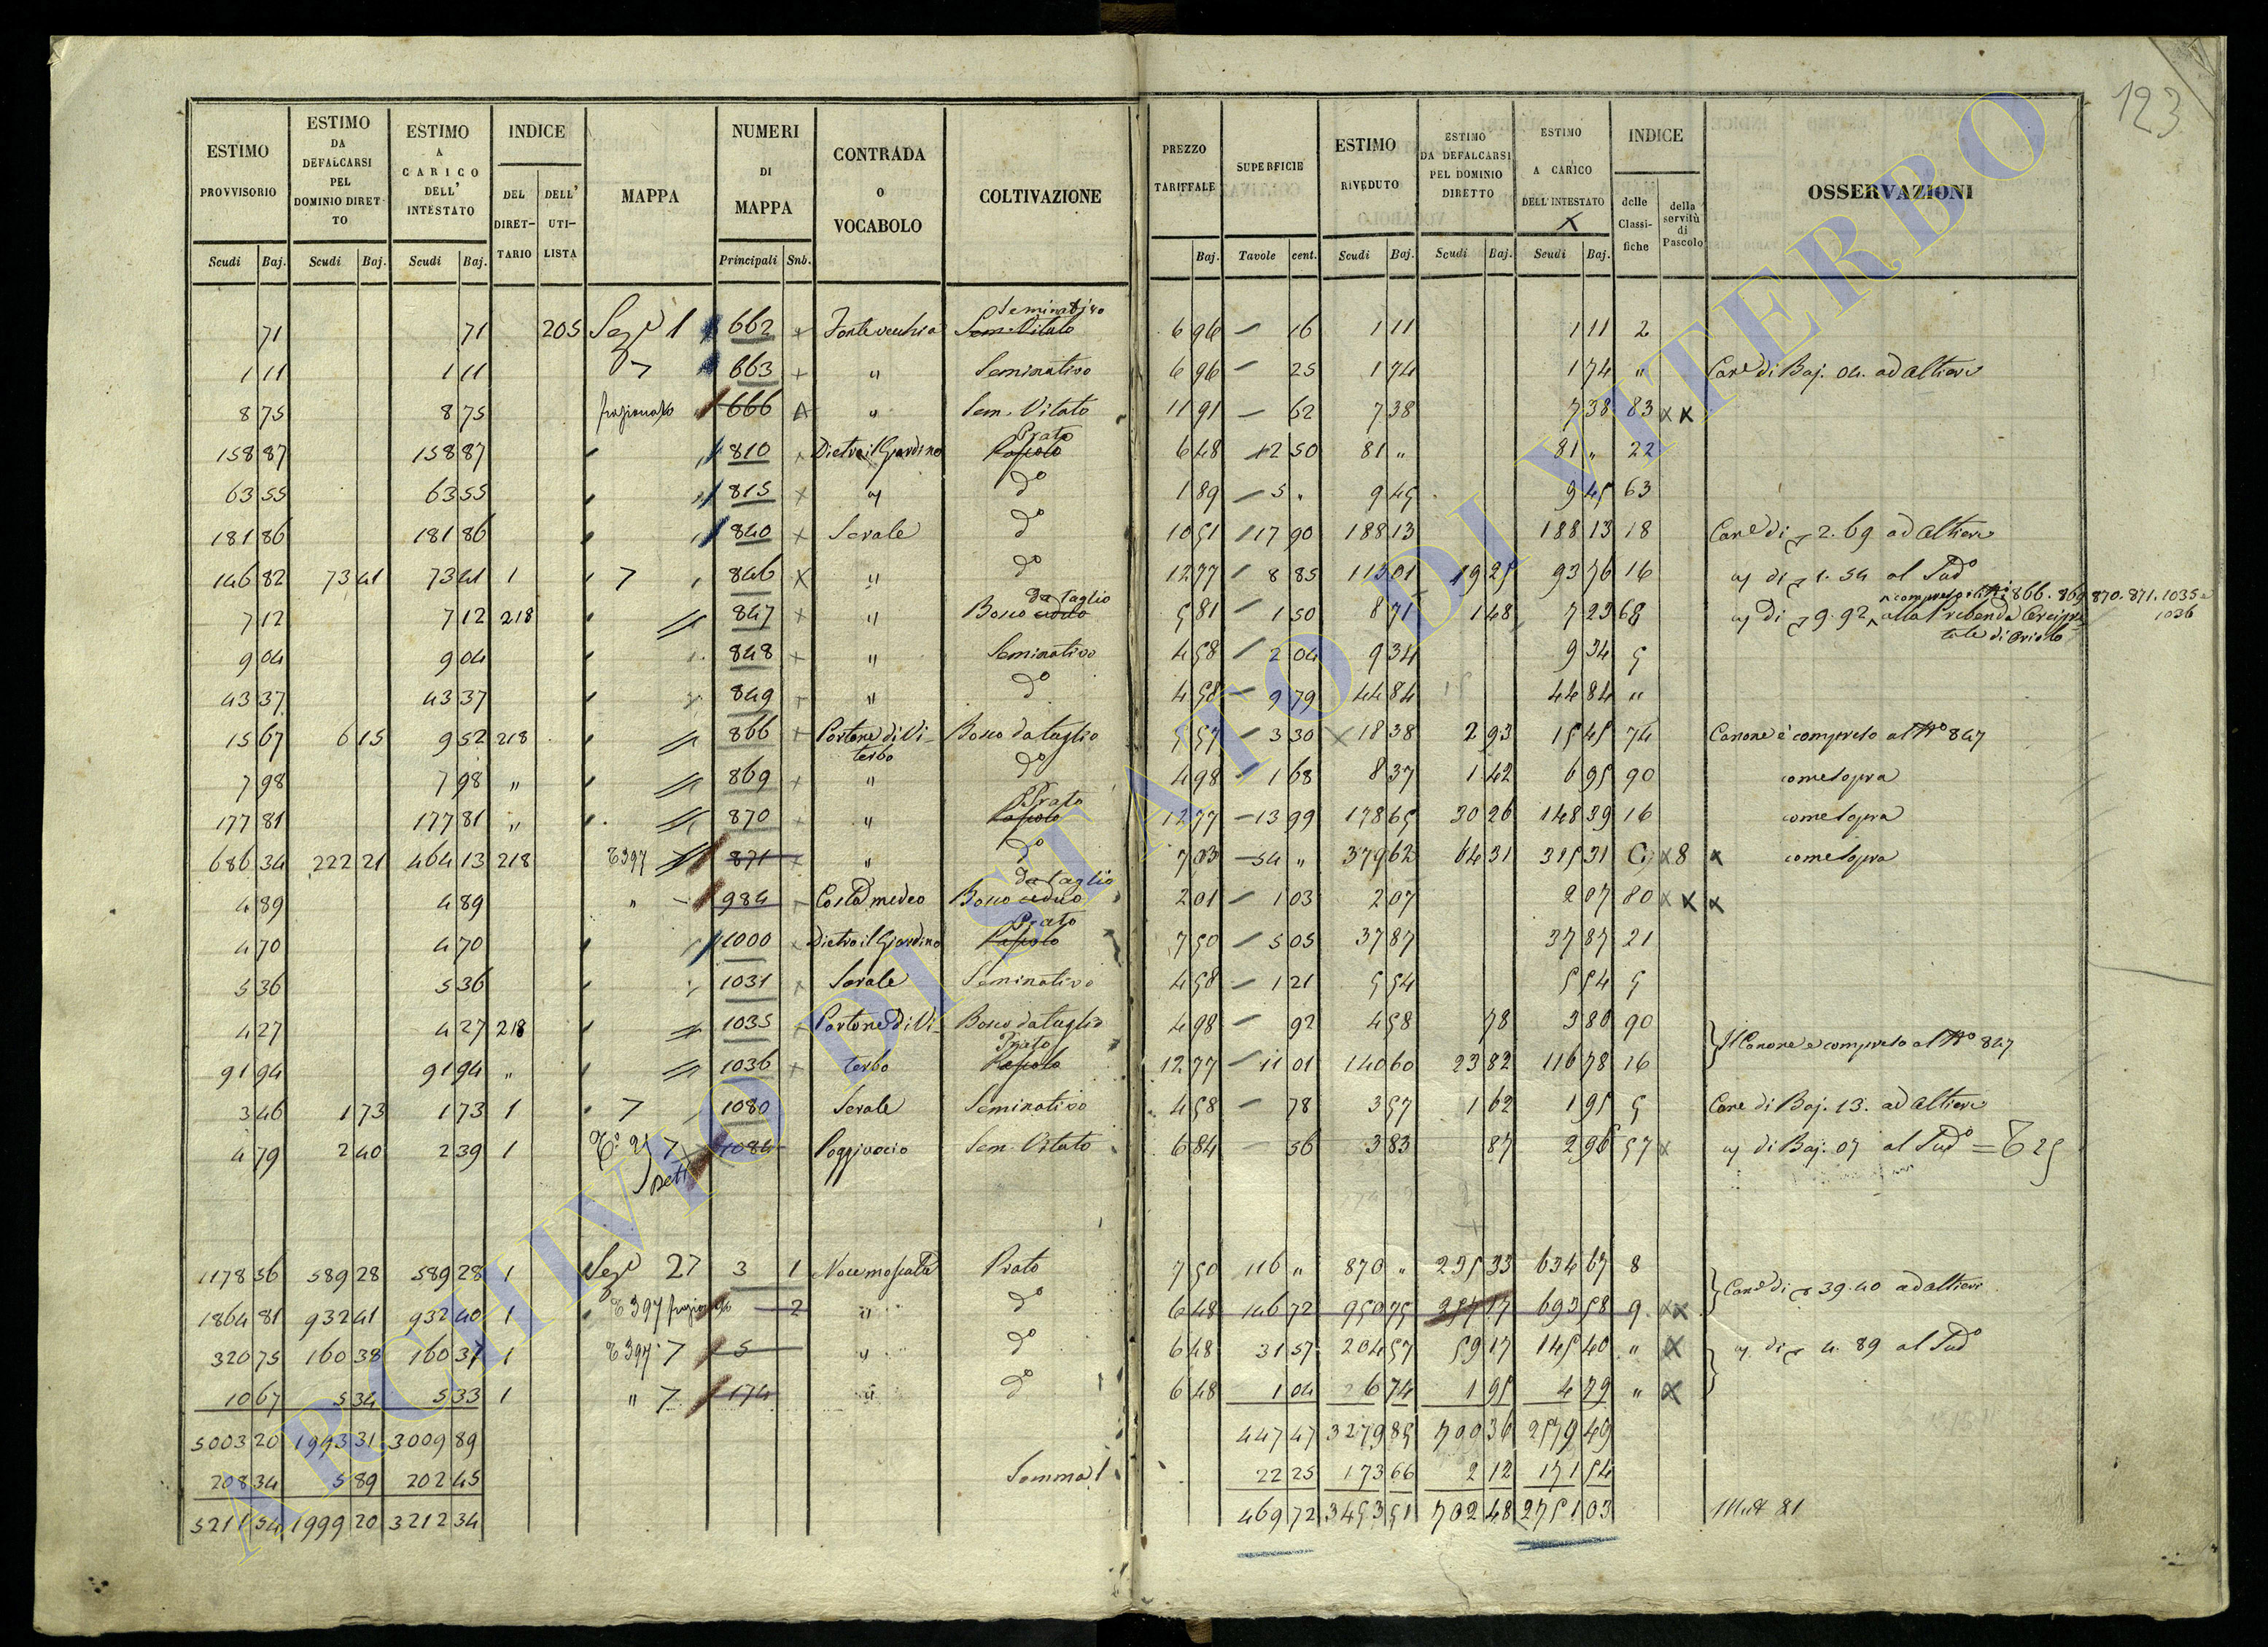 123
ESTIMO PROVVISORIO | ESTIMO DA DEFALCARSI PEL DOMINIO DIRETTO | ESTIMO A CARICO DELL' INTESTATO | INDICE DEL DIRETTARIO | DELL' UTILISTA | MAPPA | NUMERI DI MAPPA | CONTRADA O VOCABOLO | COLTIVAZIONE | PREZZO TARIFFALE | SUPERFICIE | ESTIMO RIVEDUTO | ESTIMO DA DEFALCARSI PEL DOMINIO DIRETTO | ESTIMO A CARICO DELL' INTESTATO | INDICE delle Classifiche | della servitù di Pascolo | OSSERVAZIONI
Scudi | Baj. | Scudi | Baj. | Scudi | Baj. | Principali | Snb. | Baj. | Tavole | cent. | Scudi | Baj. | Scudi | Baj. | Scudi | Baj.
71 | 71 | 205 | Sez.e 1 | 662 | Fonte vecchia | Sem. Vitato Seminativo | 6 96 | 16 | 1 11 | 1 11 | 2
1 11 | 1 11 | 663 | " | Seminativo | 6 96 | 25 | 1 74 | 1 74 | " | Cane di Baj. 04. ad Altieri
8 75 | 8 75 | frazionato | 666 | " | Sem. Vitato | 11 91 | 62 | 7 38 | 7 38 | 83
158 87 | 158 87 | 810 | Dietro il Giardino | Pascolo Prato | 6 48 | 12 50 | 81 " | 81 " | 22
63 55 | 63 55 | 815 | " | do | 1 89 | 5 " | 9 45 | 9 45 | 63
181 86 | 181 86 | 840 | Serale | do | 10 51 | 17 90 | 188 13 | 188 13 | 18 | Cane di 2.69 ad Altieri
146 82 | 73 41 | 73 41 | 1 | 846 | " | do | 12 77 | 8 85 | 113 01 | 19 25 | 93 76 | 16 | " di 1.54 al Sudo
7 12 | 7 12 | 218 | 847 | " | Bosco ceduo da taglio | 5 81 | 1 50 | 8 71 | 1 48 | 7 23 | 68 | " di 9.92 compreso i Ni 866. 869 870. 871. 1035 e 1036 alla Prebenda Arcipretale di Oriolo
9 04 | 9 04 | 848 | " | Seminativo | 4 58 | 2 04 | 9 34 | 9 34 | 5
43 37 | 43 37 | 849 | " | do | 4 58 | 9 79 | 44 84 | 44 84 | "
15 67 | 6 15 | 9 52 | 218 | 866 | Portone di Viterbo | Bosco da taglio | 5 57 | 3 30 | 18 38 | 2 93 | 15 45 | 74 | Canone è compreso al No 847
7 98 | 7 98 | " | 869 | " | do | 4 98 | 1 68 | 8 37 | 1 42 | 6 95 | 90 | come sopra
177 81 | 177 81 | " | 870 | " | Pascolo Prato | 12 77 | 13 99 | 178 65 | 30 26 | 148 39 | 16 | come sopra
686 34 | 222 21 | 464 13 | 218 | T 397 | 871 | " | do | 7 03 | 54 " | 379 62 | 64 31 | 315 31 | 8 | come sopra
4 89 | 4 89 | " | 984 | Costa medeo | Bosco ceduo da taglio | 2 01 | 1 03 | 2 07 | 2 07 | 80
4 70 | 4 70 | 1000 | Dietro il Giardino | Pascolo Prato | 7 50 | 5 05 | 37 87 | 37 87 | 21
5 36 | 5 36 | 1031 | Serale | Seminativo | 4 58 | 1 21 | 5 54 | 5 54 | 5
4 27 | 4 27 | 218 | 1035 | Portone di Vi- | Bosco da taglio | 4 98 | 92 | 4 58 | 78 | 3 80 | 90 | Il Canone è compreso al No 847
91 94 | 91 94 | " | 1036 | terbo | Pascolo Prato | 12 77 | 11 01 | 140 60 | 23 82 | 116 78 | 16
3 46 | 1 73 | 1 73 | 1 | 1080 | Serale | Seminativo | 4 58 | 78 | 3 57 | 1 62 | 1 95 | 5 | Cane di Baj. 13. ad Altieri
4 79 | 2 40 | 2 39 | 1 | 1084 | Poggivocio | Sem. Vitato | 6 84 | 56 | 3 83 | 87 | 2 96 | 57 | " di Baj. 07 al Sudo = T 25
1178 56 | 589 28 | 589 28 | 1 | Sez.e 27 | 3 | 1 | Noce moscata | Prato | 7 50 | 116 " | 870 " | 235 33 | 634 67 | 8 | Cane di 39.40 ad Altieri
1864 81 | 932 41 | 932 40 | 1 | T 397 frazionato | 2 | " | do | 6 48 | 146 72 | 950 75 | 257 17 | 693 58 | 9
320 75 | 160 38 | 160 37 | 1 | T 397 | 5 | " | do | 6 48 | 31 57 | 204 57 | 59 17 | 145 40 | " | " di 4.89 al Sudo
10 67 | 5 34 | 5 33 | 1 | " | 174 | " | do | 6 48 | 1 04 | 6 74 | 1 95 | 4 79 | "
5003 20 | 1993 31 | 3009 89 | 447 47 | 3279 85 | 700 36 | 2579 49
208 34 | 5 89 | 202 45 | Somma | 22 25 | 173 66 | 2 12 | 171 54
5211 54 | 1999 20 | 3212 34 | 469 72 | 3453 51 | 702 48 | 2751 03
ARCHIVIO DI STATO DI VITERBO